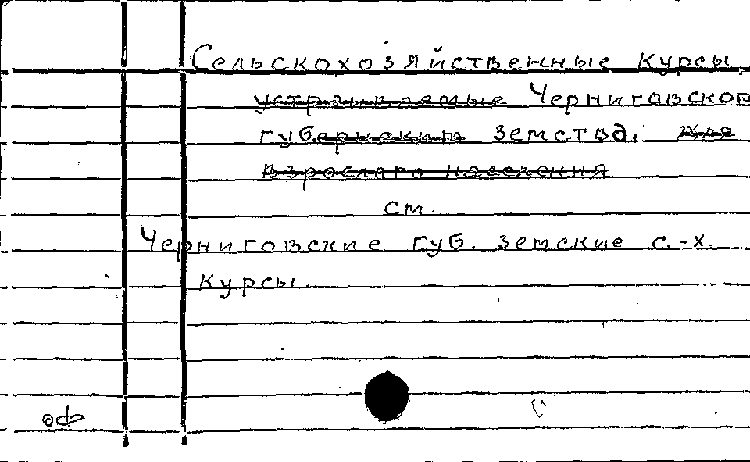 Сельскохозяйственные курсы,
устраиваемые Черниговской
губернским земства, для
взрослого населения
см.
Черниговские губ. земские с.-х.
курсы.